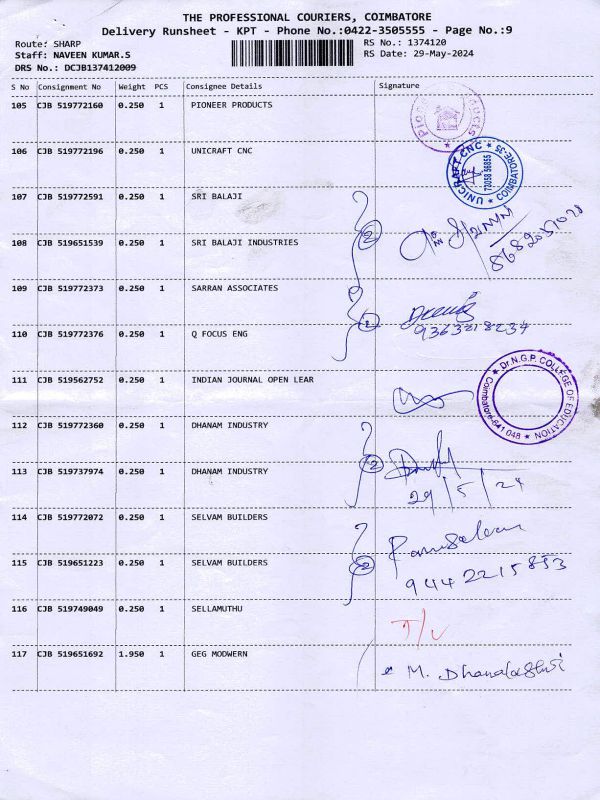 THE PROFESSIONAL COURIERS, COIMBATORE
Delivery Runsheet - KPT - Phone No.:0422-3505555 - Page No.:9
Route: SHARP
RS No.: 1374120
Staff: NAVEEN KUMAR.S
RS Date: 29-May-2024
DRS No.: DCJB137412009
S No Consignment No Weight PCS Consignee Details Signature
105 CJB 519772160 0.250 1 PIONEER PRODUCTS
106 CJB 519772196 0.250 1 UNICRAFT CNC
UNICRAFT CNC ★ COIMBATORE-35 ★
73058 56855
107 CJB 519772591 0.250 1 SRI BALAJI
2
108 CJB 519651539 0.250 1 SRI BALAJI INDUSTRIES
109 CJB 519772373 0.250 1 SARRAN ASSOCIATES
2
110 CJB 519772376 0.250 1 Q FOCUS ENG
111 CJB 519562752 0.250 1 INDIAN JOURNAL OPEN LEAR
★ Dr.N.G.P. COLLEGE OF EDUCATION ★
Coimbatore-641 048
112 CJB 519772360 0.250 1 DHANAM INDUSTRY
2
113 CJB 519737974 0.250 1 DHANAM INDUSTRY
29/5/24
114 CJB 519772072 0.250 1 SELVAM BUILDERS
2
115 CJB 519651223 0.250 1 SELVAM BUILDERS
116 CJB 519749049 0.250 1 SELLAMUTHU
117 CJB 519651692 1.950 1 GEG MODWERN
M.